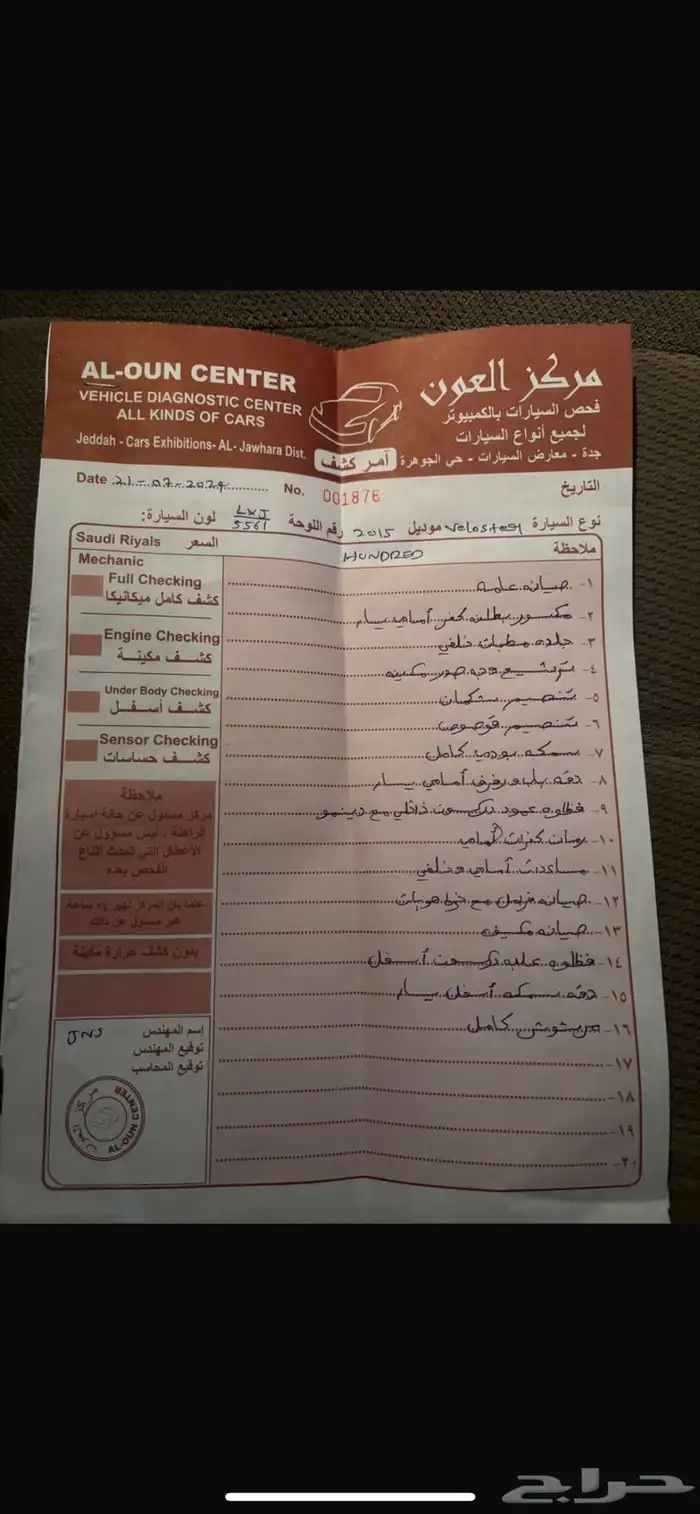 AL-OUN CENTER
VEHICLE DIAGNOSTIC CENTER
ALL KINDS OF CARS
Jeddah - Cars Exhibitions- AL- Jawhara Dist.
مركز العون
فحص السيارات بالكمبيوتر
لجميع أنواع السيارات
جدة - معارض السيارات - حي الجوهرة
آمر كشف
Date 21-07-2024 No. 001876 التاريخ
نوع السيارة Veloster موديل 2015 رقم اللوحة LXJ 5561 لون السيارة:
Saudi Riyals السعر
HUNDRED
ملاحظة
Mechanic
Full Checking
كشف كامل ميكانيكا
Engine Checking
كشف مكينة
Under Body Checking
كشف أسفل
Sensor Checking
كشف حساسات
ملاحظة
مركز مسئول عن حالة اسيارة
الراهنة ، ليس مسوول عن
الأعطال التي تحدث اثناع
الفحص بعده
علما بان المركز لهير ٢٤ ساعة
غير مسئول عن ذالك
بدون كشف حرارة مكينة
إسم المهندس JNJ
توقيع المهندس
توقيع المحاسب
مركز العون
AL-OUN CENTER
١- صيانه عامه
٢- مكسور بطانه كفر أمامي يسار
٣- جلده مطبات خلفي
٤- ترشيح وجه صدر مكينه
٥- تنصيم شكمان
٦- تنصيم
٧- سمكه بودي كامل
٨- دقه باب ورفرف أمامي يسار
٩- عمود دركسون داخلي مع دينمو
١٠- كفرات أمامي
١١- مساعدات أمامي وخلفي
١٢- صيانه فرامل مع خرط هوبات
١٣- صيانه مكيف
١٤- علبه دركسون أسفل
١٥- دقه سمكه أسفل يسار
١٦- مرشوش كامل
١٧-
١٨-
١٩-
٢٠-
حراج